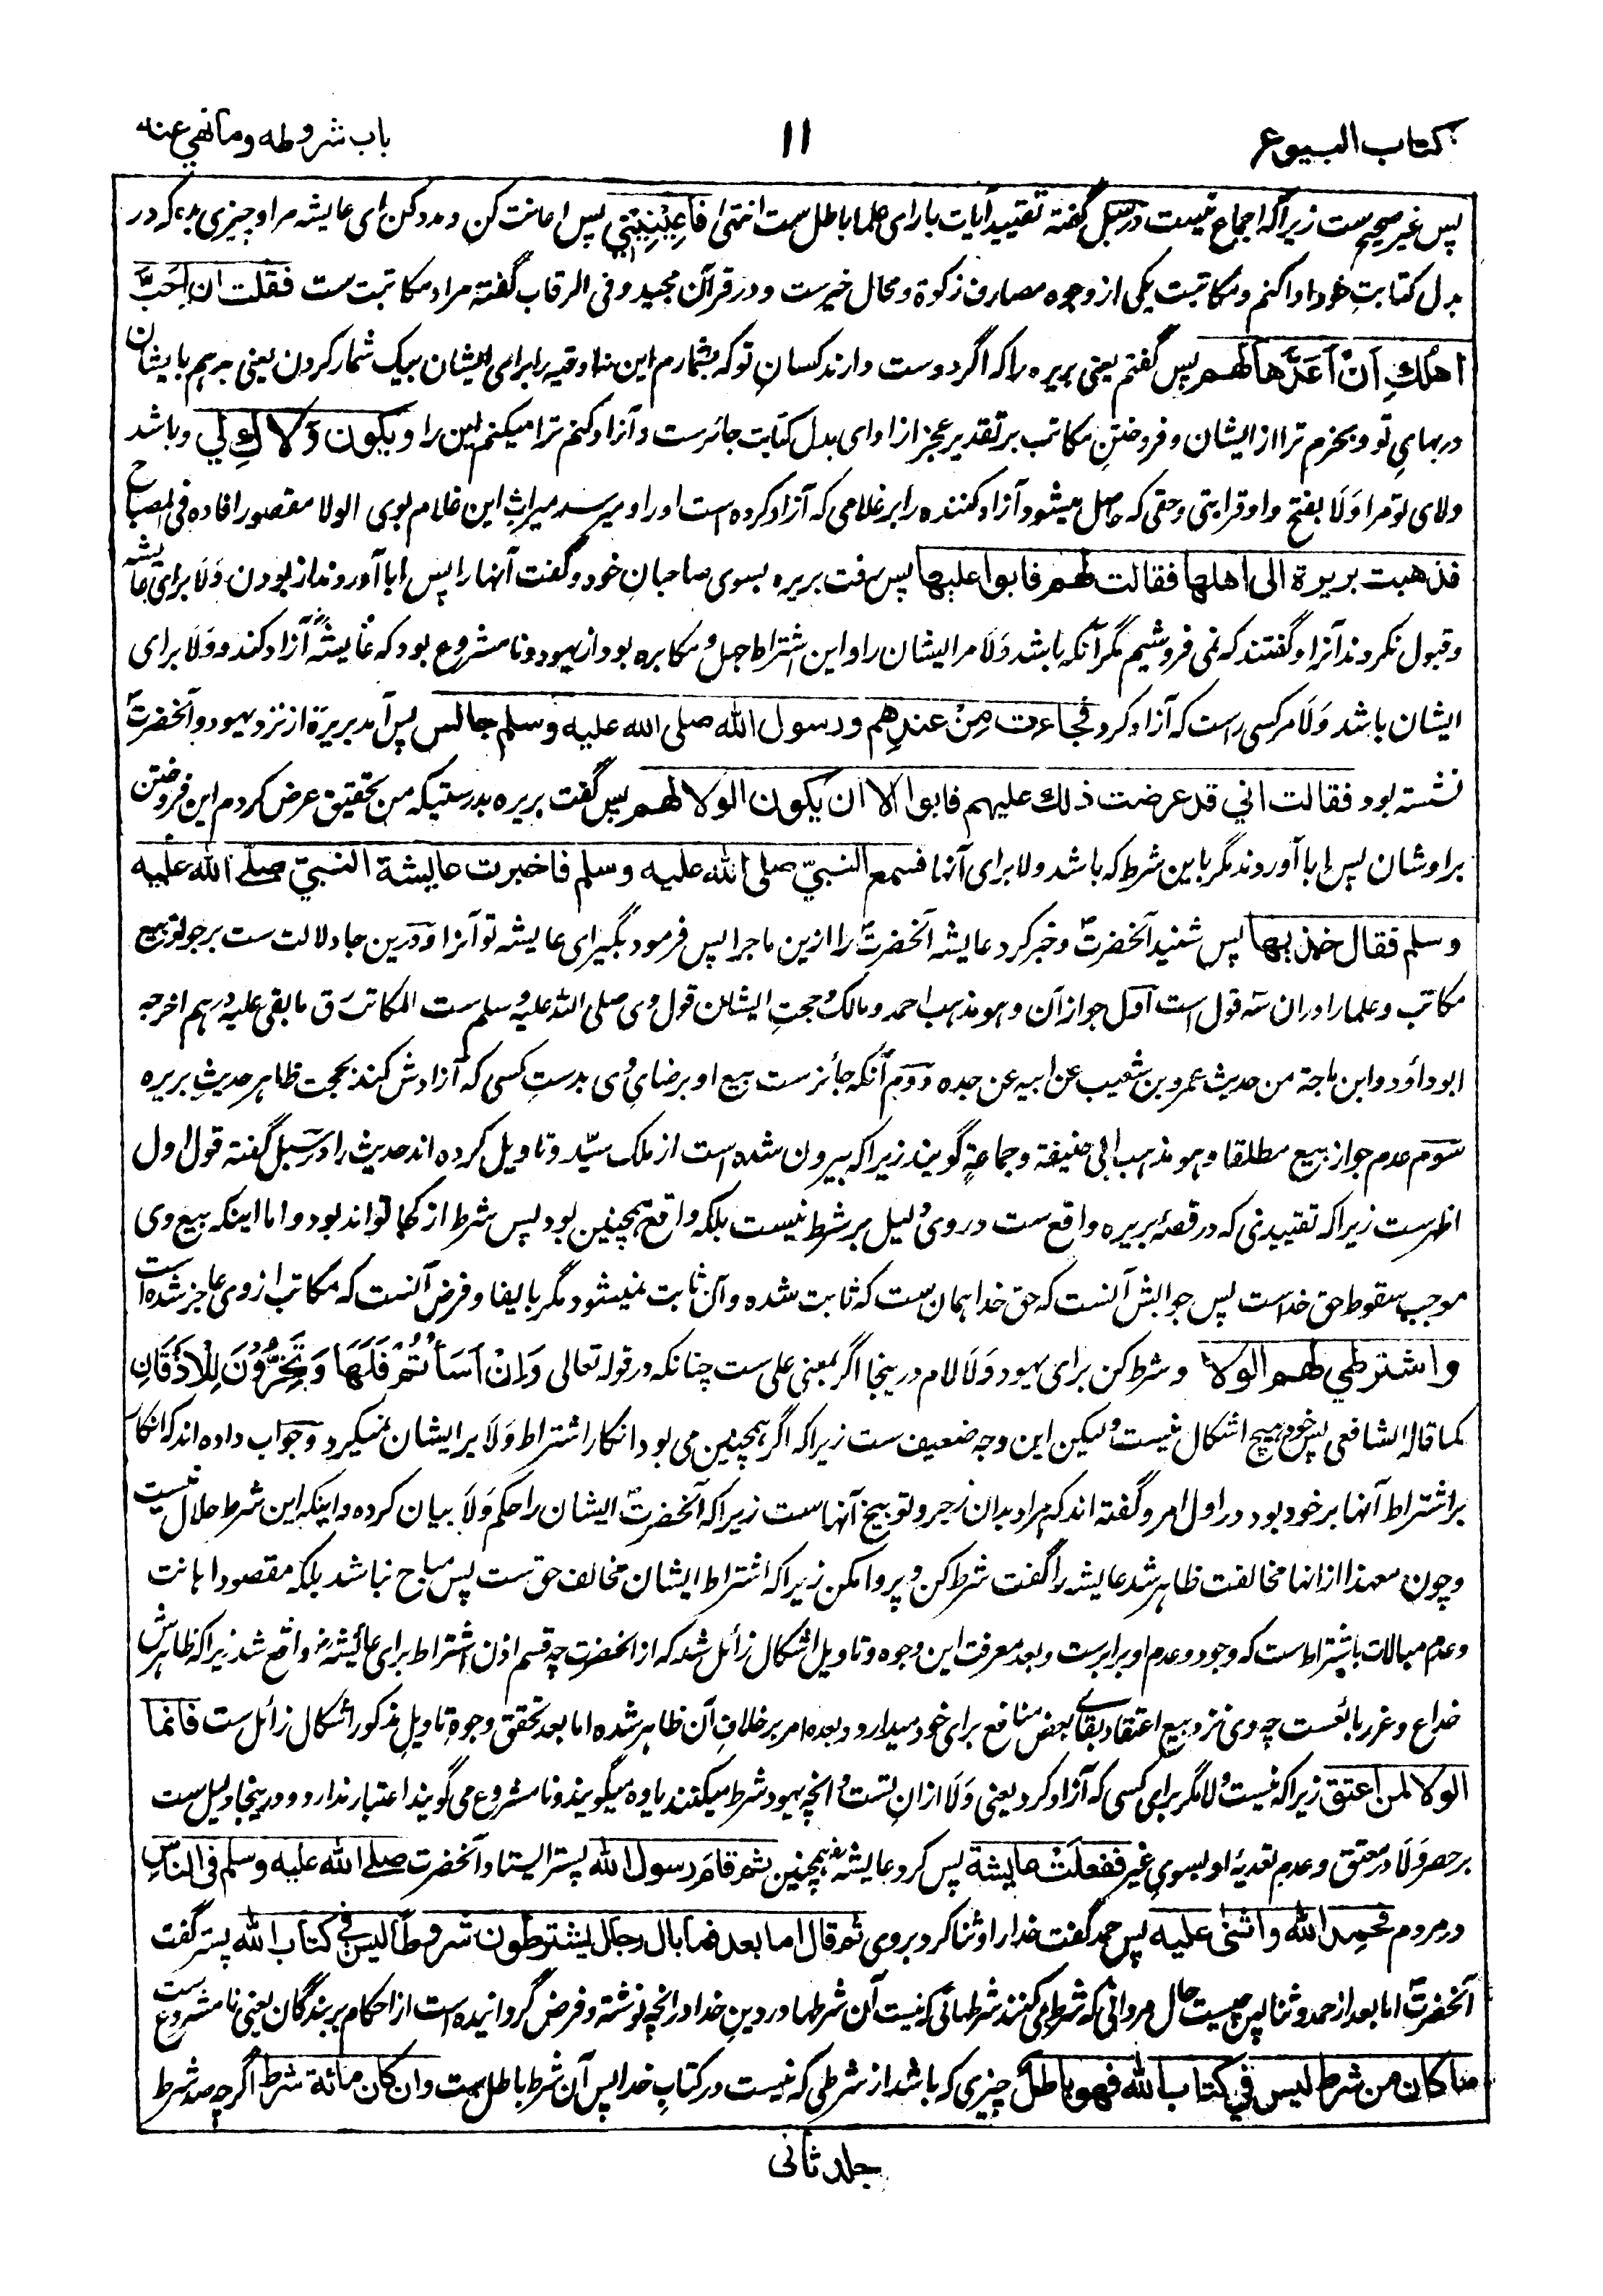 کتاب البیوع
۱۱
باب شروطه وما نهي عنه
پس غیر صحیح ست زیرا که اجماع نیست در سبل گفته تقیید آیات بارای علما باطل ست انتهی فَاَعِیْنِیْنِي پس اعانت کن و مدد کن ای عایشه مرا و چیزی بده که در
بدل کتابت خود ادا کنم و مکاتبت یکی از وجوه مصارف زکوة و محال خیر ست و در قرآن مجید و فی الرقاب گفته مراد مکاتبت ست فقلت ان اَحَبَّ
اَهْلُكِ اَنْ اَعُدَّها لهم پس گفتم یعنی بریره را که اگر دوست دارند کسان تو که بشمارم این نه اوقیه را برای ایشان بیک شمار کردن یعنی بدهم بایشان
در بهای تو و بخرم ترا از ایشان و فروختن مکاتب بر تقدیر عجز از ادای بدل کتابت جائز ست و آزاد کنم ترا میکنم این را ویکون وَلاؤُكِ لي و باشد
ولای تو مرا وَلَا بفتح واو قرابتی و حقی که حاصل میشود آزاد کننده را بر غلامی که آزاد کرده است او را و میرسد میراث این غلام بوی الولا مقصورا افاده فی المصباح
فذهبت بریرة الی اهلها فقالت لهم فابوا علیها پس رفت بریره بسوی صاحبان خود و گفت آنها را پس ابا آوردند از بودن وَلَا برای عایشه
و قبول نکردند آنرا و گفتند که نمی فروشیم مگر آنکه باشد وَلَا مر ایشان را و این اشتراط جهل و مکابره بود از یهود و نامشروع بود که عایشه آزاد کند و وَلَا برای
ایشان باشد وَلَا مر کسی راست که آزاد کرد فجاءت مِنْ عندِهم ورسول الله صلی الله علیه وسلم جالس پس آمد بریرة از نزد یهود و آنحضرت
نشسته بود فقالت اني قد عرضت ذلك علیهم فابوا الا ان یکون الولا لهم پس گفت بریره بدرستیکه من بتحقیق عرض کردم این فروختن
براوشان پس ابا آوردند مگر باین شرط که باشد ولا برای آنها فسمع النبيّ صلی الله علیه وسلم فاخبرت عایشة النبيّ صلی الله علیه
وسلم فقال خذیها پس شنید آنحضرتؐ و خبر کرد عایشه آنحضرتؐ را ازین ماجرا پس فرمود بگیر ای عایشه تو آنرا و درین جا دلالت ست بر جواز بیع
مکاتب و علما را در ان سه قول است اول جواز آن و هو مذهب احمد و مالک و حجت ایشان قول وی صلی الله علیه وسلم ست المکاتب رق ما بقی علیه درهم اخرجه
ابو داؤد و ابن ماجة من حدیث عمرو بن شعیب عن ابیه عن جده دوم آنکه جائز ست بیع او برضای وی بدست کسی که آزادش کند بحجت ظاهر حدیث بریره
سوم عدم جواز بیع مطلقا و هو مذهب ابی حنیفة و جماعةٍ گویند زیرا که بیرون شده است از ملک سیّد و تاویل کرده اند حدیث را در سبل گفته قول اول
اظهر ست زیرا که تقییدی که در قصهٔ بریره واقع ست در وی دلیل بر شرط نیست بلکه واقع همچنین بود پس شرط از کجا تواند بود و اما اینکه بیع وی
موجب سقوط حق خداست پس جوابش آنست که حق خدا همان ست که ثابت شده و آن ثابت نمیشود مگر بایفا و فرض آنست که مکاتب از وی عاجز شده است
واشترطي لهم الولا و شرط کن برای یهود وَلَا لام درینجا اگر بمعنی علی ست چنانکه در قوله تعالی وَاِنْ اَسَأْتُمْ فَلَهَا وَ یَخِرُّوْنَ لِلْاَذْقَانِ
کما قاله الشافعی پس خود هیچ اشکال نیست و لیکن این وجه ضعیف ست زیرا که اگر همچنین می بود انکار اشتراط وَلَا بر ایشان نمیکرد و جواب داده اند که انکار
بر اشتراط آنها بر خود بود در اول امر و گفته اند که مراد بدان زجر و توبیخ آنها ست زیرا که آنحضرتؐ ایشان را حکم وَلَا بیان کرده و اینکه این شرط حلال نیست
و چون معهذا ازانها مخالفت ظاهر شد عایشه را گفت شرط کن و پروا مکن زیرا که اشتراط ایشان مخالف حق ست پس مباح نباشد بلکه مقصود اهانت
و عدم مبالات باشتراط ست که وجود و عدم او برابر ست و بعد معرفت این وجوه و تاویل اشکال زائل شد که از آنحضرت چه قسم اذن اشتراط برای عائیشه واقع شد زیرا که ظاهرش
خداع و غرر بائع ست چه وی نزد بیع اعتقاد بقای بعض منافع برای خود میدارد و بعده امر بر خلاف آن ظاهر شده اما بعد تحقق وجوه تاویل مذکور اشکال زائل ست فانما
الولا لمن اعتق زیرا که نیست ولا مگر برای کسی که آزاد کرد یعنی وَلَا ازان تست و آنچه یهود شرط میکنند یاوه میگویند و نامشروع می گویند اعتبار ندارد و درینجا دلیل ست
بر حصر وَلَا در معتق و عدم تعدیهٔ او بسوی غیر ففعلَتْ عایشة پس کرد عایشه همچنین ثم قام رسول الله پستر ایستاد آنحضرت صلی الله علیه وسلم فی الناس
در مردم فحمد الله واثنی علیه پس حمد گفت خدا را و ثنا کرد بر وی ثم قال اما بعد فما بال رجال یشترطون شروطاً لیس في کتاب الله پستر گفت
آنحضرتؐ اما بعد از حمد و ثنا پس چیست حال مردانی که شرط می کنند شرطهائی که نیست آن شرطها در دین خدا و آنچه نوشته و فرض گردانیده است از احکام بر بندگان یعنی نامشروع ست
ما کان من شرط لیس في کتاب الله فهو باطل چیزی که باشد از شرطی که نیست در کتاب خدا پس آن شرط باطل ست وان کان مائة شرط اگر چه صد شرط
جلد ثانی